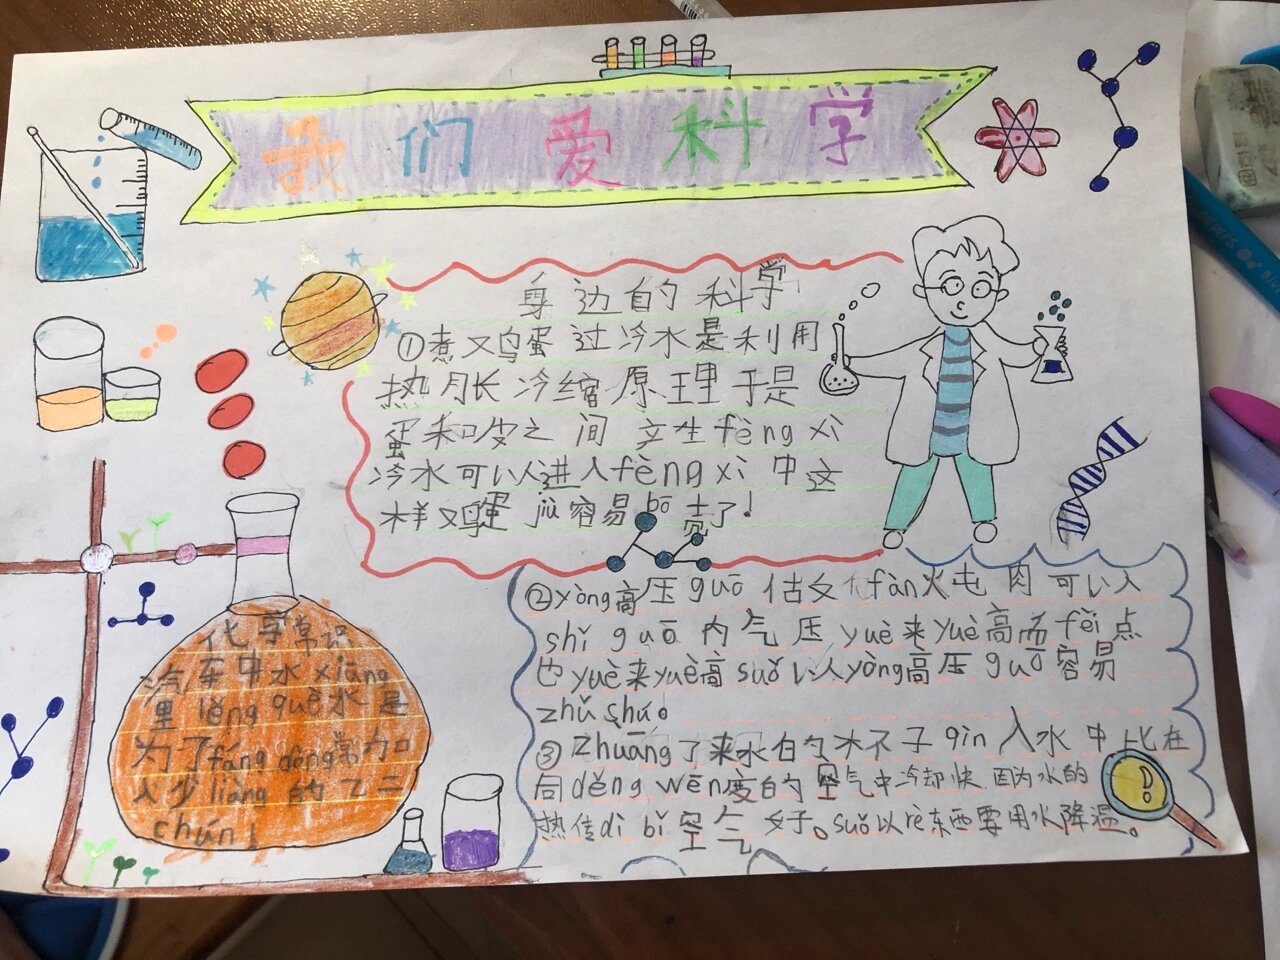 我们爱科学
身边的科学
①煮又鸟蛋过冷水是利用
热月长冷缩原理于是
蛋和皮之间产生fèng xì
冷水可以人进入fèng xì中这
样又鸟蛋jiù容易bō壳了!
②yòng高压guō 估文fàn火屯肉可以人
shǐ guō内气压yuè来yuè高而fèi点
也yuè来yuè高suǒ以人yòng高压guō容易
zhǔ shú。
③zhuāng了来水白勺冰不子qìn入水中比在
同děng wēn度的空气中冷却快.因为水的
热传dì bǐ空气好。suǒ以rè东西要用水降温。
化学常识
汽车中水xiāng
里lěng què水是
为了fáng dòng常力口
入少liàng的乙二
chún!